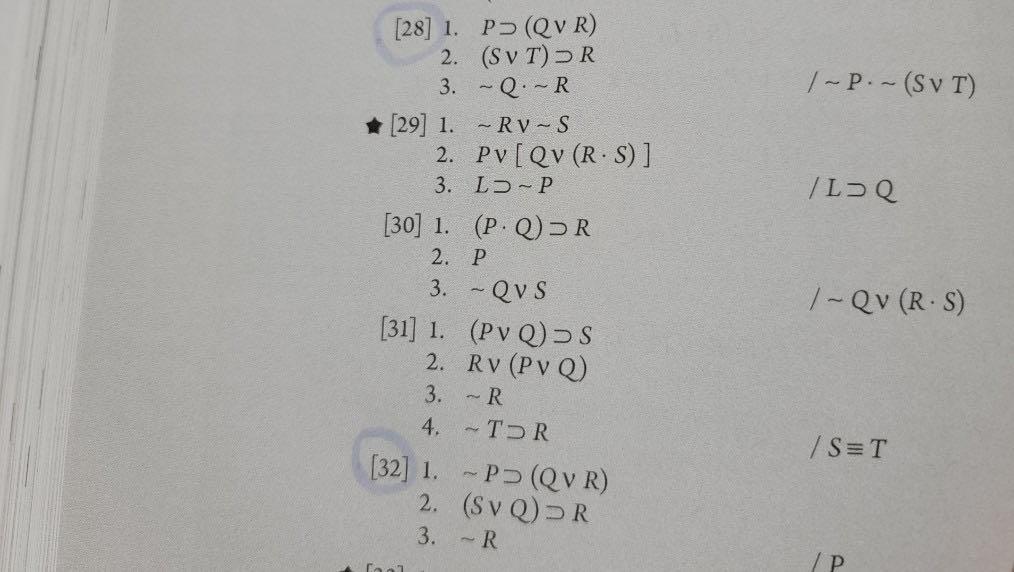 [28] 1. P ⊃ (Q v R)
2. (S v T) ⊃ R
3. ~ Q · ~ R / ~ P · ~ (S v T)
★ [29] 1. ~ R v ~ S
2. P v [ Q v (R · S) ]
3. L ⊃ ~ P / L ⊃ Q
[30] 1. (P · Q) ⊃ R
2. P
3. ~ Q v S / ~ Q v (R · S)
[31] 1. (P v Q) ⊃ S
2. R v (P v Q)
3. ~ R
4. ~ T ⊃ R / S ≡ T
[32] 1. ~ P ⊃ (Q v R)
2. (S v Q) ⊃ R
3. ~ R / P